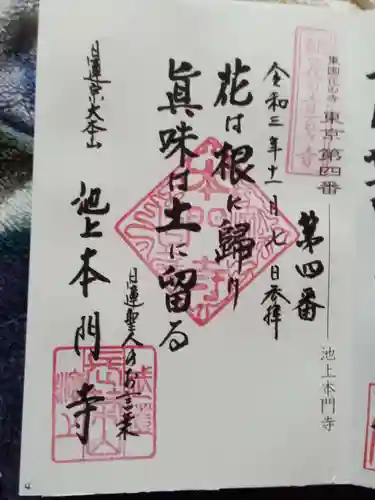 東国花の寺 東京第四番
池上本門寺
第四番
令和三年十一月七日参拝
花は根に歸り
眞味は土に留る
日蓮聖人のお言葉
日蓮宗大本山
池上本門寺
4